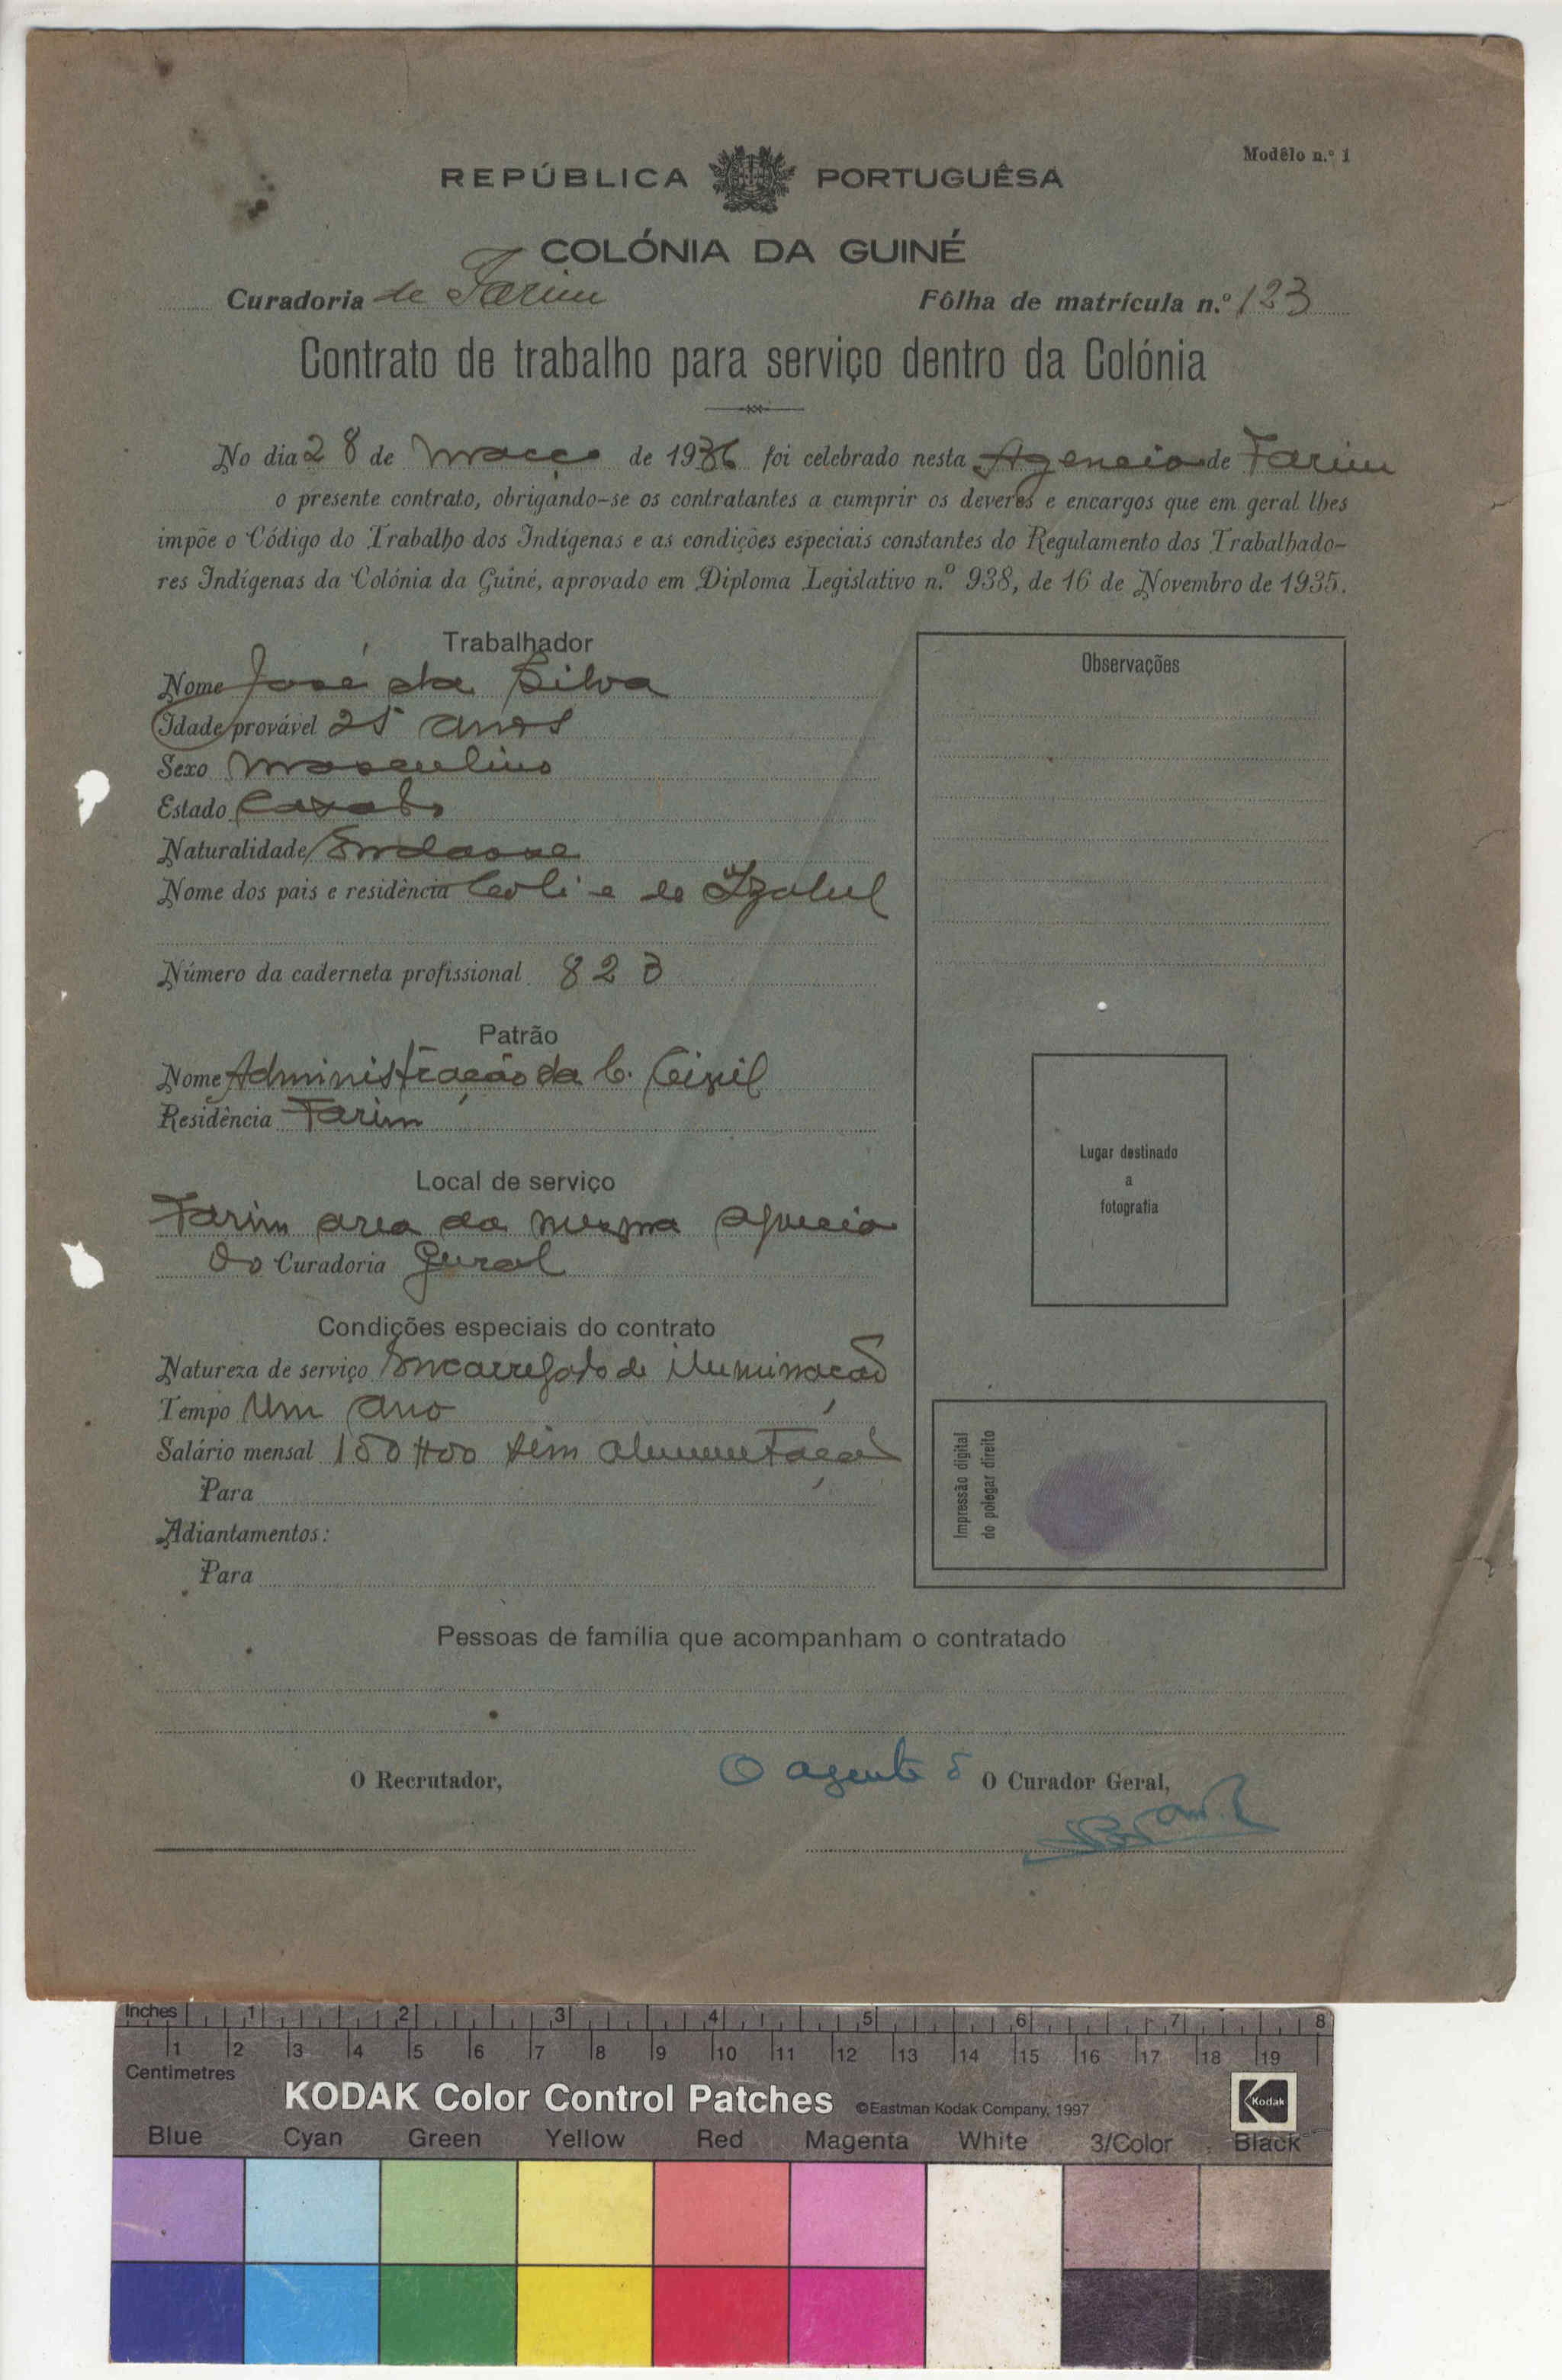 Modêlo n.º 1
REPÚBLICA PORTUGUÊSA
COLÓNIA DA GUINÉ
Curadoria de Farim Fôlha de matrícula n.º 123
Contrato de trabalho para serviço dentro da Colónia
No dia 28 de Março de 1936 foi celebrado nesta Agencia de Farim
o presente contrato, obrigando-se os contratantes a cumprir os deveres e encargos que em geral lhes
impõe o Código do Trabalho dos Indígenas e as condições especiais constantes do Regulamento dos Trabalhado-
res Indígenas da Colónia da Guiné, aprovado em Diploma Legislativo n.º 938, de 16 de Novembro de 1935.
Trabalhador
Nome José da Silva
Idade provável 25 anos
Sexo Masculino
Estado Casado
Naturalidade
Nome dos pais e residência
Número da caderneta profissional 823
Patrão
Nome Administração da C. Civil
Residência Farim
Local de serviço
Farim area da mesma agencia
do Curadoria Geral
Condições especiais do contrato
Natureza de serviço Encarregado de iluminação
Tempo Um ano
Salário mensal 150$00 sem alimentação
Para
Adiantamentos:
Para
Observações
Lugar destinado
a
fotografia
Impressão digital
do polegar direito
Pessoas de família que acompanham o contratado
O Recrutador, O agente d O Curador Geral,
Inches 1 2 3 4 5 6 7 8
1 2 3 4 5 6 7 8 9 10 11 12 13 14 15 16 17 18 19
Centimetres
KODAK Color Control Patches ©Eastman Kodak Company, 1997 Kodak
Blue Cyan Green Yellow Red Magenta White 3/Color Black